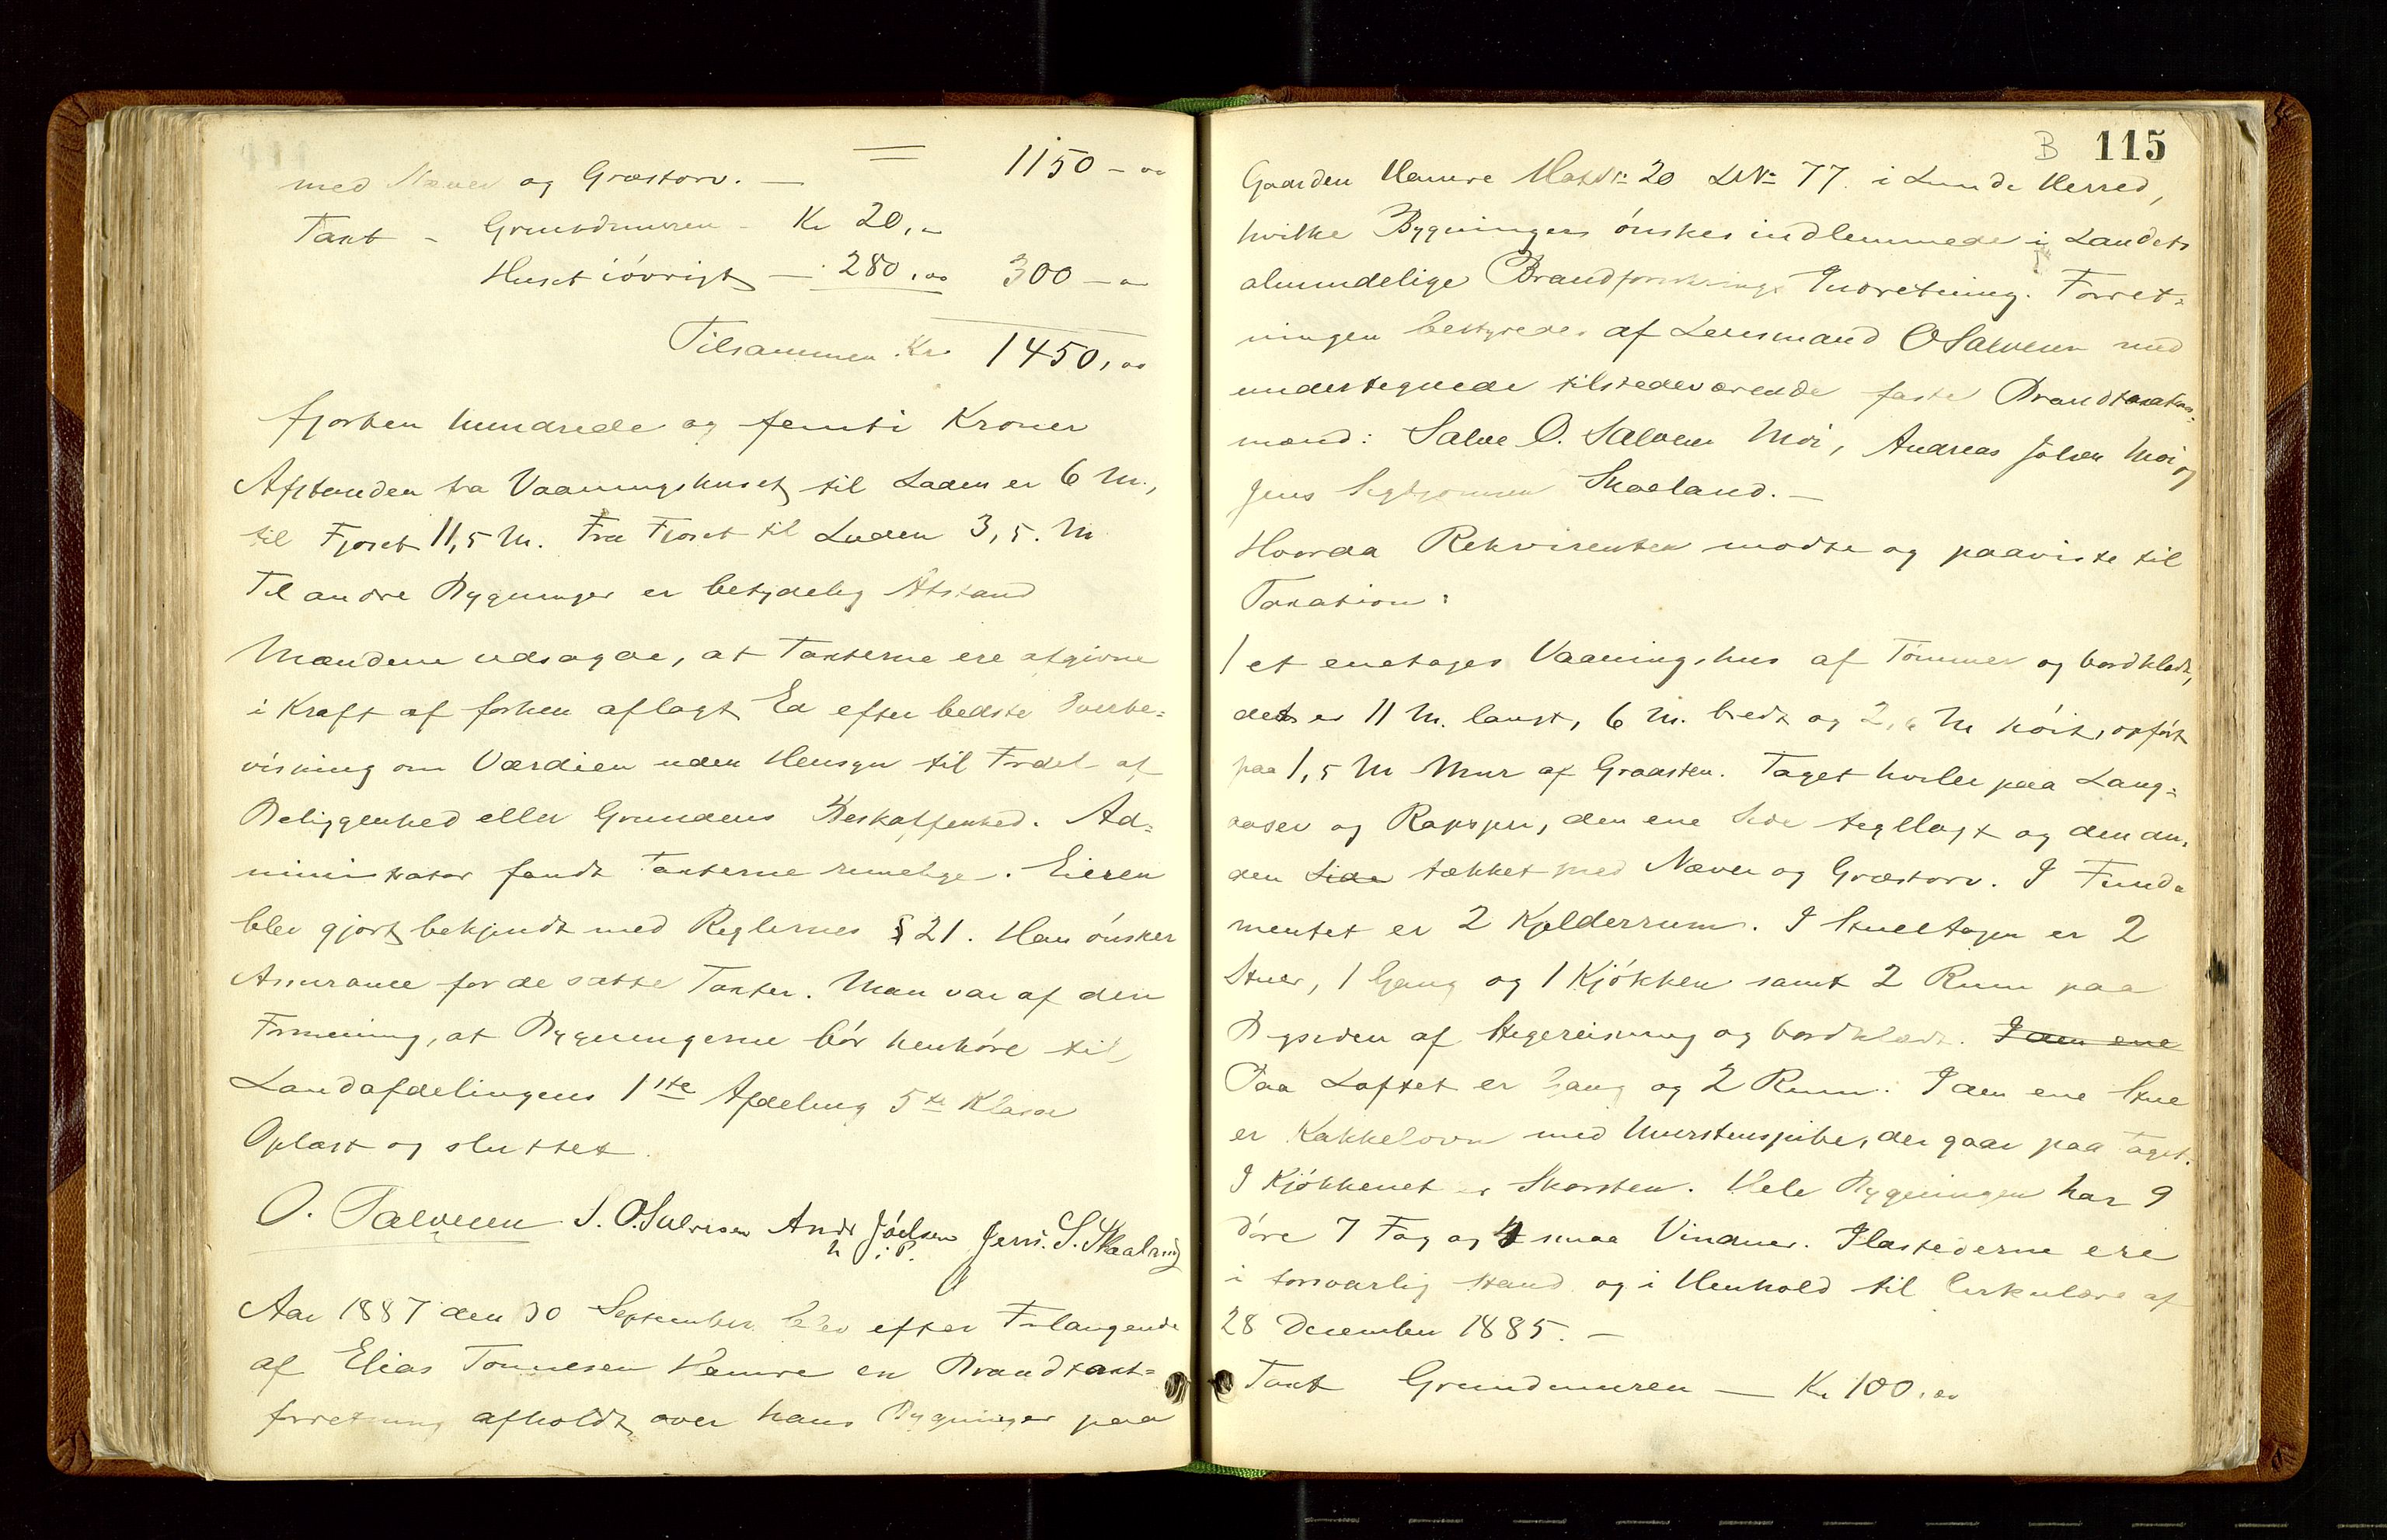 = 1150 - 00
med Næver og Græstorv. —
Taxt - Grundmuren - Kr 20,-
Huset iövrigt — 280,00 300 - 00
Tilsammen Kr. 1450,00
fjorten hundrede og femti Kroner
Afstanden fra Vaaningshuset til Laden er 6 M.,
til Fjöset 11,5 M. Fra Fjöset til Laden 3,5. M
Til andre Bygninger er betydelig Afstand
Mændene udsagde, at Taxterne ere afgivne
i Kraft af forhen aflagt Ed efter bedste Overbe=
visning om Værdien uden Hensyn til Fordel af
Beliggenhed eller Grundens Beskaffenhed. Ad=
ministrator fandt Taxterne rimelige. Eieren
blev gjort bekjendt med Reglernes § 21. Han önsker
Assurance for de satte Taxter. Man var af den
Formening, at Bygningerne bör henhöre til
Landafdelingens 1ste Afdeling 5te Klasse
Oplæst og sluttet.
O. Salvesen S. O. Salvesen Andr Jöelsen Jens. S. Skaaland
m. i. P.
Aar 1887 den 30 September blev efter Forlangende
af Elias Tonnesen Hamre en Brandtaxt=
forretning afholdt over hans Bygninger paa
B 115
Gaarden Hamre Mat№ 20 L№ 77. i Lunde Herred,
hvilke Bygninger önskes indlemmede i Landets
almindelige Brandforsikrings Indretning. Forret=
ningen bestyredes af Lensmand O Salvesen med
undertegnede tilstedeværende faste Brandtaxations=
mænd: Salve O. Salvesen Moi, Andreas Jölsen Moi og
Jens Sigbjörnsen Skaeland. —
Hvorda Rekvirenten mødte og paaviste til
Taxation:
1 et enetages Vaaningshus af Tömmer og bordklædt,
det er 11 M. langt, 6 M. bredt og 2,6 M höit, opfört
paa 1,5 M Mur af Graasten. Taget hviler paa Lang=
aaser og Rapsper, den ene Side tegllagt og den an=
den Side tækket med Næver og Græstorv. I Funda
mentet er 2 Kjelderrum. I Stueetagen er 2
Stuer, 1 Gang og 1 Kjökken samt 2 Rum paa
Bagsiden af Stagereisning og bordklædt. I den ene
Paa Loftet er Gang og 2 Rum. I den ene Stue
er Kakkelovn med Murstenspibe, der gaar paa Taget.
I Kjökkenet er Skorsten. Hele Bygningen har 9
Döre 7 Fag og 4 smaa Vinduer. Ildstederne ere
i forsvarlig Stand og i Henhold til Cirkulære af
28 December 1885. —
Taxt Grundmuren — Kr 100,00